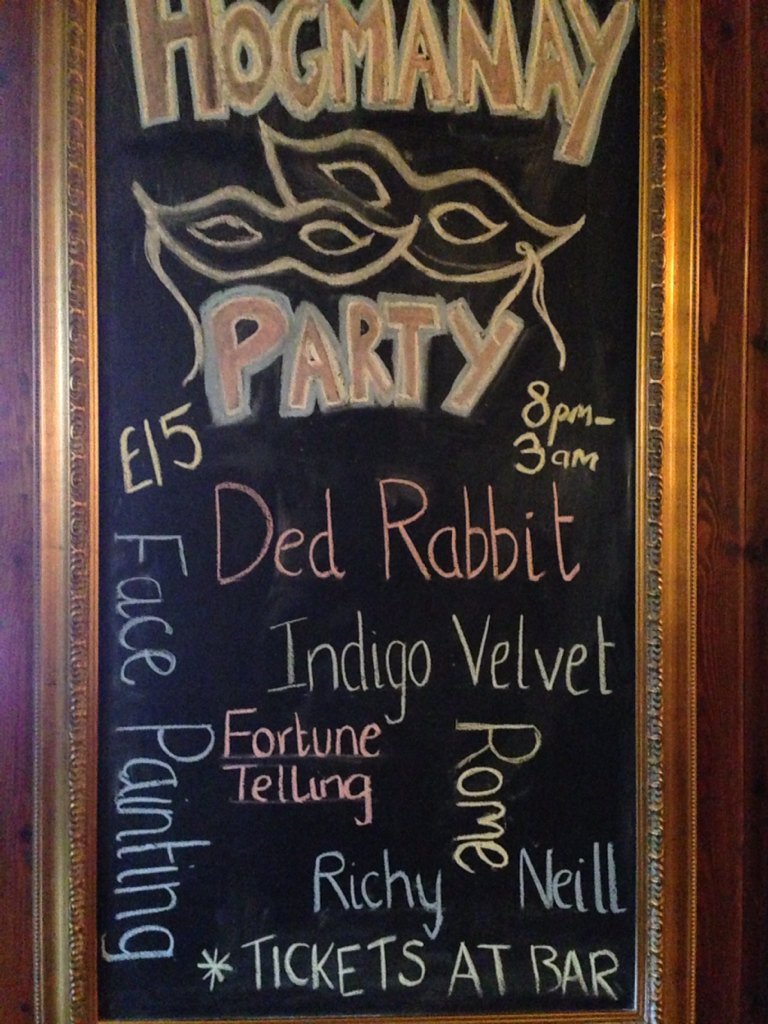 HOGMANAY
PARTY
£15
8pm-
3am
Ded Rabbit
Face Painting
Indigo Velvet
Fortune
Telling
Rome
Richy Neill
*TICKETS AT BAR